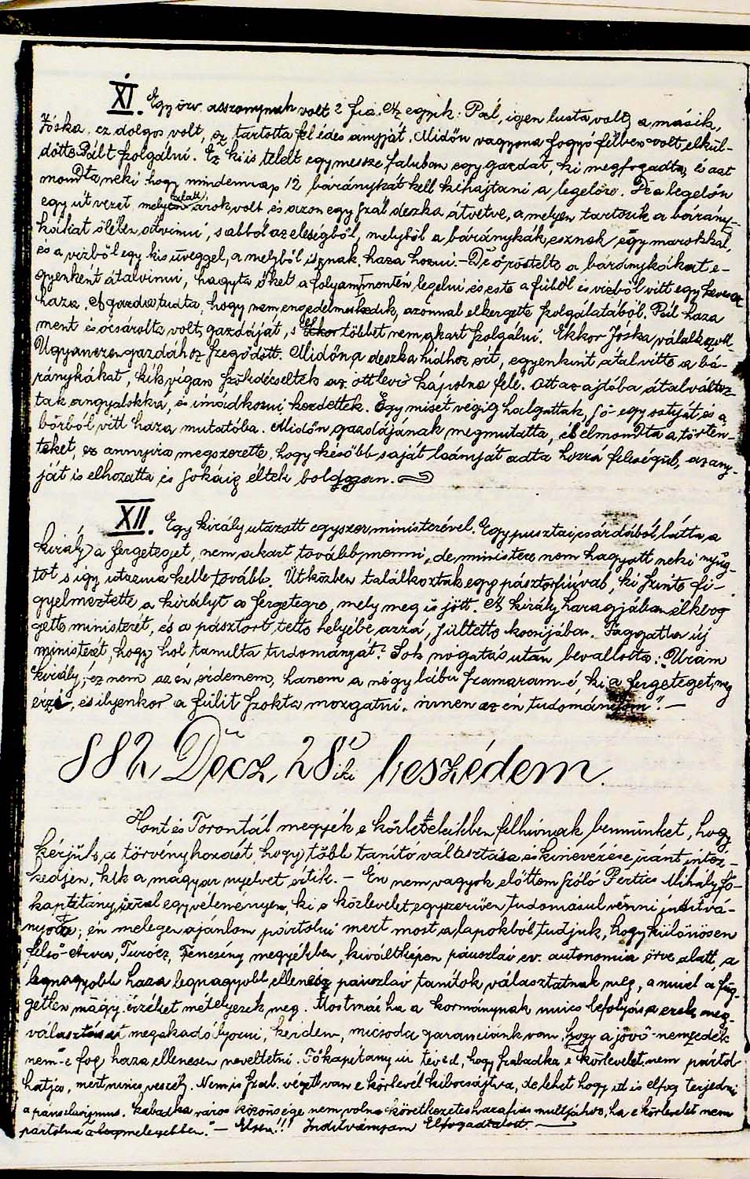 XI. Egy özv. asszonynak volt 2 fia. Az egyik: Pál, igen lusta volt, a másik,
Jóska, ez dolgos volt, ez tartotta fel édes anyját. Midőn vagyona fogyó félben volt, elkül-
dötte Pált szolgálni. Ez ki is telelt egy messze faluban egy gazdát, ki megfogadta, és azt
mondta neki hogy mindennap 12 báránykát kell kihajtani a legelőre. De a legelőn
egy út vezet, mely alatt árok volt, és azon egy szál deszka átvetve, a melyen tartozik a bárány-
kákat ölében átvinni, s abból az eleségből, melyből a báránykák esznak, egy marokkal,
és a vízből egy kis üveggel, a melyből isznak, haza hozni. — De ő röstelte a báránykákat e-
gyenként átalvinni, hagyta őket a folyam mentén legelni és este a fűből és vízből vitt egy keveset
haza. A gazda tudta, hogy nem engedelmeskedik, azonnal elkergette szolgálatából. Pál haza
ment és ócsárolta volt gazdáját, s többet nem akart szolgálni. Ekkor Jóska válalkozott.
Ugyanazon gazdához szegődött. Midőn a deszka hídhoz ért, egyenkint átalvitte a bá-
ránykákat, kik vígan szökdécseltek az ott levő kápolna felé. Ott az ajtóba átalváltoz-
tak angyalokká, és imádkozni kezdettek. Egy misét végig halgattak, fö- egy ostyát, és a
borból vitt haza mutatóba. Midőn gazdájának megmutatta, és elmondta a történ-
teket, ez annyira megszerette, hogy később saját leányját adta hozzá feleségül, az any-
ját is elhozatta és sokáig éltek boldogan.
XII. Egy király utazott egyszer ministerével. Egy pusztai csárdából látta a
király a fergeteget, nem akart tovább menni, de ministere nem hagyott neki nyug-
tot s így utaznia kelle tovább. Útközben találkoztak egy pásztorfiúval, ki szinte fi-
gyelmeztette a királyt a fergetegre, mely meg is jött. A király haragjában elkerg
gette ministerét, és a pásztort tette helyébe, azzá, ültette kocsijában. Faggatta új
ministerét, hogy hol tanulta tudományát? Sok nógatás után bevallotta: "Uram
király, ez nem az én érdemem, hanem a négy lábú szamaramé, ki a fergeteget meg
érzi, és ilyenkor a fülit szokta mozgatni. innen az én tudományom". —
882 Decz, 28iki beszédem.
Hont és Torontál megyék e körleveleikben felhívnak bennünket, hogy
kérjük a törvényhozást hogy több tanító választása és kinevezése iránt intéz-
kedjen, kik a magyar nyelvet értik. — Én nem vagyok előttem szóló Pertics Mihály fő-
kapitány úrral egy véleményen, ki e körlevelet egyszerűen tudomásul venni indítvá-
nyozta; én melegen ajánlom pártolni mert most a lapokból tudjuk, hogy különösen
felső- Árva, Turócz, Trencsény megyékben, kiváltképen pánszláv ev. autonomia örve alatt, a
legnagyobb haza legnagyobb ellenség pánszláv tanítók választatnak meg, a mivel a füg-
getlen magy. érzéket mételyezik meg. Most már ha a kormánynak nincs befolyása ezek meg-
választását megakadályozni, kérdem, micsoda garancziánk van, hogy a jövő nemzedék
nem-e fog haza ellenesen neveltetni. Főkapitány úr téved, hogy Szabadka e körlevelet nem pártol-
hatja, mert nincs veszély. Nem is Szab. végett van e körlevél kibocsájtva, de lehet hogy itt is elfog terjedni
a pánslavizmus. Szabadka város közönsége nem volna következetes hazafias multjához, ha e körlevelet nem
pártolná a legmelegebben." — Éljen!!! Indítványom Elfogadtatott. —